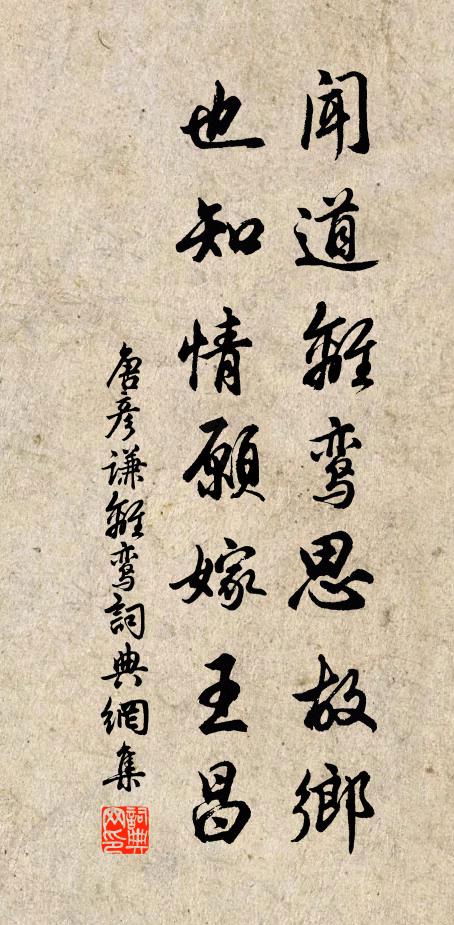 闻道離鸾思故鄉
也知情願嫁王昌
唐彦谦離鸾詞典網集
詞典网印